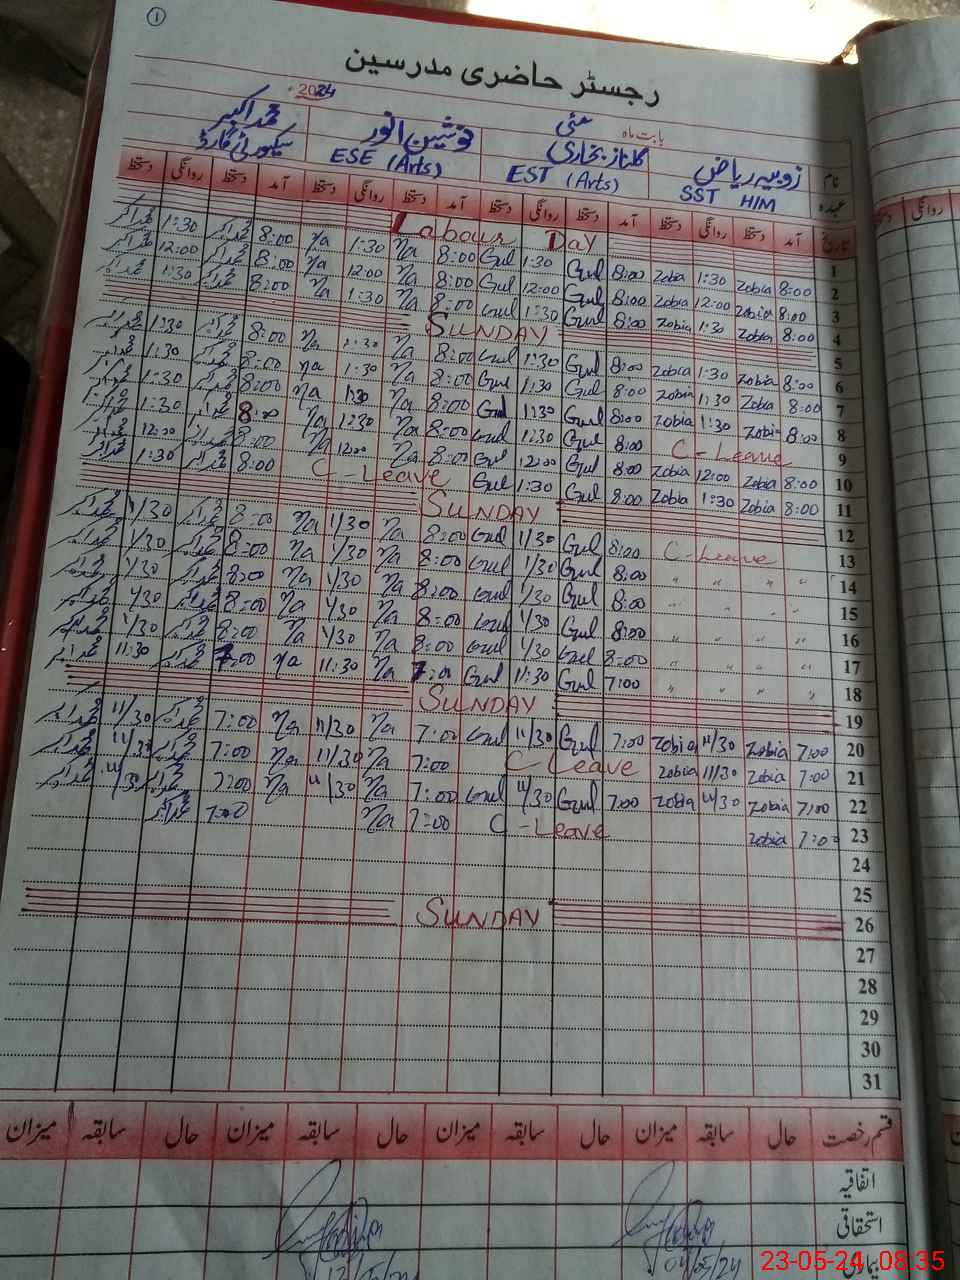 ①
رجسٹر حاضری مدرسین
بابت ماہ مئی 2024
نام زوبیہ ریاض گلناز بخاری نوشین انور محمد اکبر
عہدہ SST H/M EST (Arts) ESE (Arts) سیکورٹی گارڈ
تاریخ آمد دستخط روانگی دستخط آمد دستخط روانگی دستخط آمد دستخط روانگی دستخط آمد دستخط روانگی دستخط
1 Labour Day
2 8:00 Zobia 1:30 Zobia 8:00 Gul 1:30 Gul 8:00 Na 1:30 Na 8:00 محمد اکبر 1:30 محمد اکبر
3 8:00 Zobia 12:00 Zobia 8:00 Gul 12:00 Gul 8:00 Na 12:00 Na 8:00 محمد اکبر 12:00 محمد اکبر
4 8:00 Zobia 1:30 Zobia 8:00 Gul 1:30 Gul 8:00 Na 1:30 Na 8:00 محمد اکبر 1:30 محمد اکبر
5 SUNDAY
6 8:00 Zobia 1:30 Zobia 8:00 Gul 1:30 Gul 8:00 Na 1:30 Na 8:00 محمد اکبر 1:30 محمد اکبر
7 8:00 Zobia 1:30 Zobia 8:00 Gul 1:30 Gul 8:00 Na 1:30 Na 8:00 محمد اکبر 1:30 محمد اکبر
8 8:00 Zobia 1:30 Zobia 8:00 Gul 1:30 Gul 8:00 Na 1:30 Na 8:00 محمد اکبر 1:30 محمد اکبر
9 C-Leave 8:00 Gul 1:30 Gul 8:00 Na 1:30 Na 8:00 محمد اکبر 1:30 محمد اکبر
10 8:00 Zobia 12:00 Zobia 8:00 Gul 12:00 Gul 8:00 Na 12:00 Na 8:00 محمد اکبر 12:00 محمد اکبر
11 8:00 Zobia 1:30 Zobia 8:00 Gul 1:30 Gul C-Leave 8:00 محمد اکبر 1:30 محمد اکبر
12 SUNDAY
13 C-Leave 8:00 Gul 1/30 Gul 8:00 Na 1/30 Na 8:00 محمد اکبر 1/30 محمد اکبر
14 " " " " 8:00 Gul 1/30 Gul 8:00 Na 1/30 Na 8:00 محمد اکبر 1/30 محمد اکبر
15 " " " " 8:00 Gul 1/30 Gul 8:00 Na 1/30 Na 8:00 محمد اکبر 1/30 محمد اکبر
16 " " " " 8:00 Gul 1/30 Gul 8:00 Na 1/30 Na 8:00 محمد اکبر 1/30 محمد اکبر
17 " " " " 8:00 Gul 1/30 Gul 8:00 Na 1/30 Na 8:00 محمد اکبر 1/30 محمد اکبر
18 " " " " 7:00 Gul 11:30 Gul 7:00 Na 11:30 Na 7:00 محمد اکبر 11:30 محمد اکبر
19 SUNDAY
20 7:00 Zobia 11/30 Zobia 7:00 Gul 11/30 Gul 7:00 Na 11/30 Na 7:00 محمد اکبر 11/30 محمد اکبر
21 7:00 Zobia 11/30 Zobia C Leave 7:00 Na 11/30 Na 7:00 محمد اکبر 11/30 محمد اکبر
22 7:00 Zobia 11/30 Zobia 7:00 Gul 11/30 Gul 7:00 Na 11/30 Na 7:00 محمد اکبر 11/30 محمد اکبر
23 7:00 Zobia C-Leave 7:00 Na 7:00 محمد اکبر
24
25
26 SUNDAY
27
28
29
30
31
قسم رخصت حال سابقہ میزان حال سابقہ میزان حال سابقہ میزان حال سابقہ میزان
اتفاقیہ
استحقاقی
23-05-24 08:35